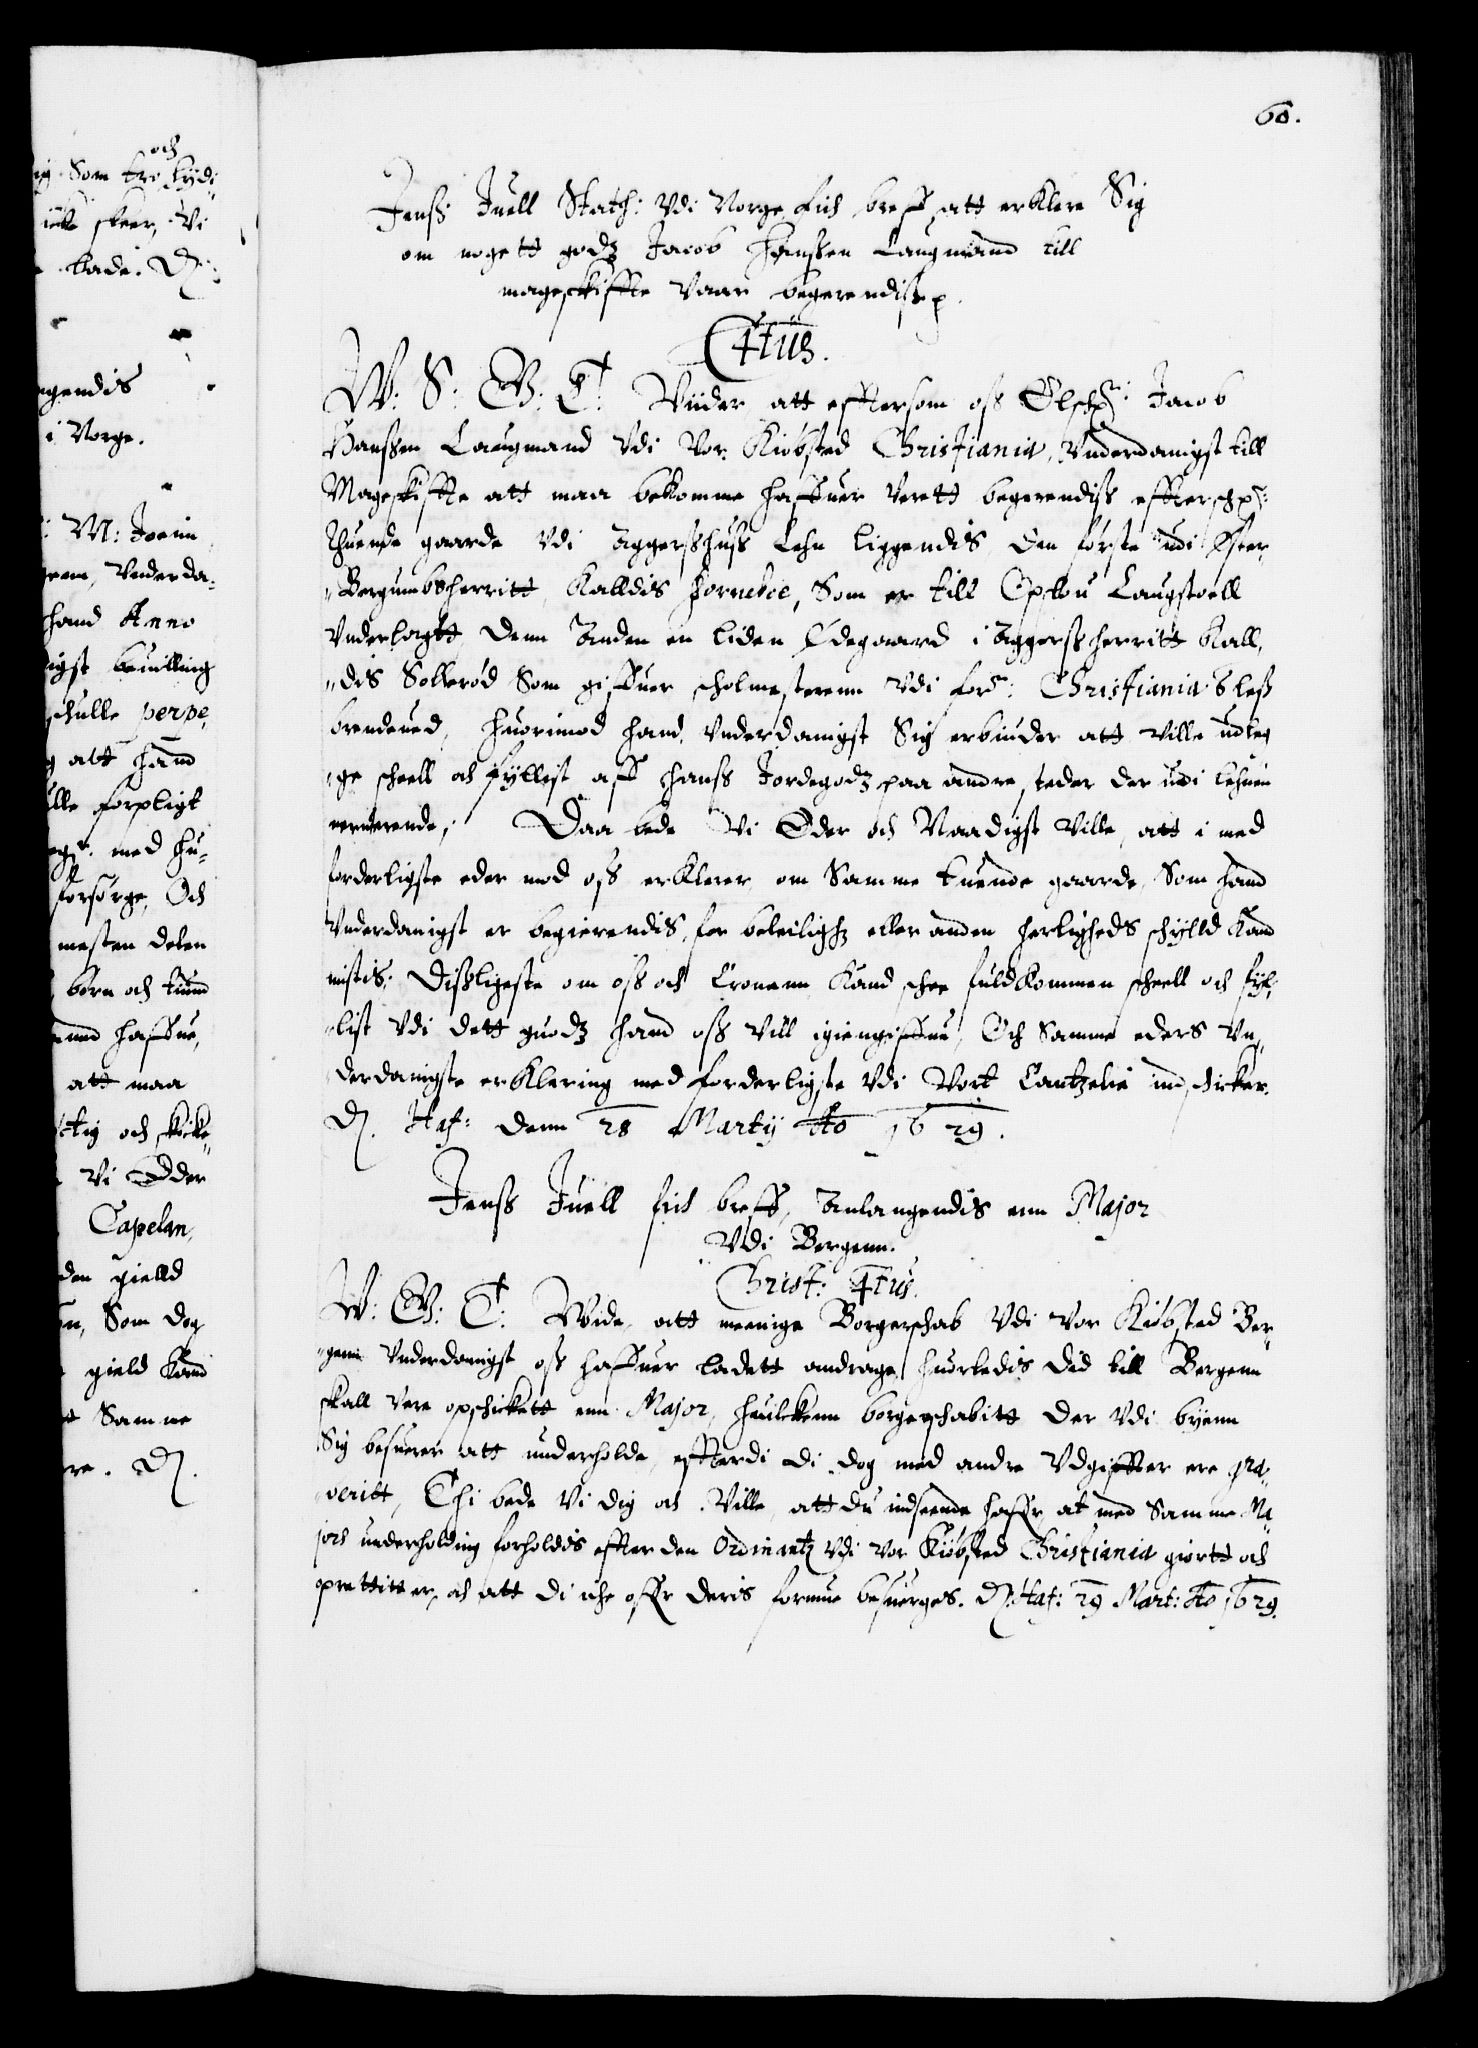 60.
Jenss Juell Stath: Vdi Norge fich breff, att erklere Sig
om nogett godz Jacob Hanssen Laugmand till
mageskiffte vaar begerendiss p.
C4tus.
W: S: G: T: Viider, att efftersom oss Elsch: Jacob
Hanssen Laugmand Vdi Vor Kiöbsted Christiania, Vnderdanigst till
Mageskiffte att maa bekomme haffuer verett begerendiss effterschr:
thuende gaarde Vdi Aggershuss Lehn liggendis, den förste udi Öster
Bergumbsherritt, Kalldis Forneboe, Som er till Opslou Laugstoell
Vnderlagtt, denn Anden en liden Ödegaard i Aggerssherritt Kall,
dis Sollerød Som giffuer scholmesterenn Vdi ford: Christiania 6 less
brendeued, Huorimod hand, Vnderdanigst Sig erbiuder att ville udleg
ge scheell och fyllist aff hanss Jordegodz paa andre steder der udi lehnen
verierende; Daa bede Vi Eder och Naadigst ville, att i med
forderligste eder mod oss erklerer, om Samme tuende gaarde, Som hand
Vnderdanigst er begierendis, for beleilighz eller anden herligheds schylld Kand
mistis; Disligeste om oss och Cronenn Kand schee fuldkommen scheell och fyl,
list Vdi dett guodz hand oss Vill igiengiffue, Och Samme eders Vn,
derdanigste erklering med forderligste Vdi Vort Cantzelie indschicker.
D. Haf: denn 28 Martij Ao 1629.
Jenss Juell fich breff, Anlangendis enn Major
Vdi Bergenn.
Christ: 4tus.
W: G: T: Viide, att meenige Borgerschab Vdi Vor Kiöbsted Ber,
genn Vnderdanigst oss haffuer ladett andrage, huorledis did till Bergenn
skall vere opschickett enn Major, huilckenn borgerschabitt der Vdi byenn
Sig besuerer att underholde, effterdi di dog med andre Vdgiffter ere gra,
veritt, Thi bede Vi dig och Ville, att du indseende haffr, at med Samme Ma
jors underholding forholdis effter den Ordinantz Vdi vor Kiöbsted Christiania giortt och
oprettitt er, och att di iche offr deris formue besuerges. D. Haf: 29 Mart: Ao 1629.